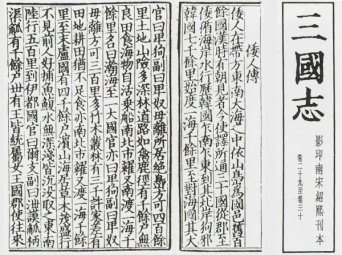 三國志
影印南宋紹熙刊本
卷二十九至卷三十
倭人傳
倭人在帶方東南大海之中依山㠀爲國邑舊百
餘國漢時有朝見者今使譯所通三十國從郡至
倭循海岸水行歷韓國乍南乍東到其北岸狗邪
韓國七千餘里始度一海千餘里至對海國其大
官曰卑狗副曰卑奴母離所居絶㠀方可四百餘
里土地山險多深林道路如禽鹿徑有千餘戸無
良田食海物自活乗船南北市糴又南渡一海千
餘里名曰瀚海至一大國官亦曰卑狗副曰卑奴
母離方可三百里多竹木叢林有三千許家差有
田地耕田猶不足食亦南北市糴又渡一海千餘
里至末盧國有四千餘戸濵山海居草木茂盛行
不見前人好捕魚鰒水無深淺皆沈没取之東南
陸行五百里到伊都國官曰爾支副曰泄謨觚柄
渠觚有千餘戸世有王皆統屬女王國郡使往來